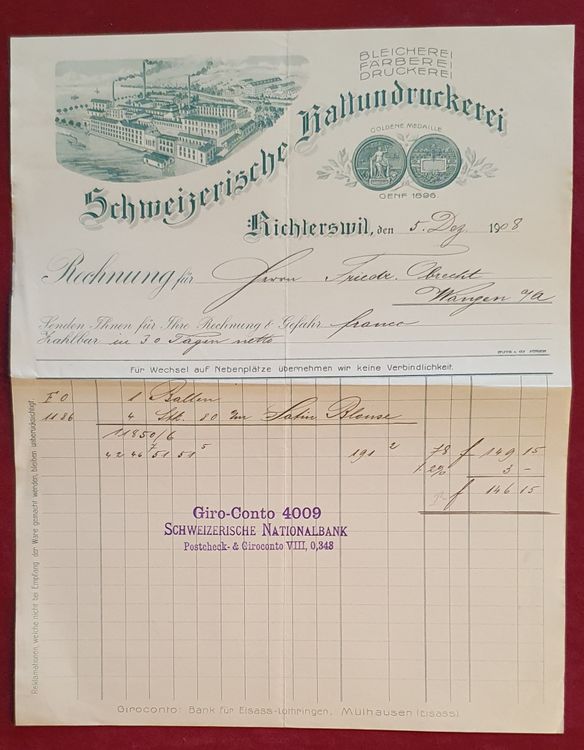 BLEICHEREI
FÄRBEREI
DRUCKEREI
Schweizerische Kattundruckerei
GOLDENE MEDAILLE
GENF 1896.
Richterswil, den 5. Dez. 1908
Rechnung für Herrn Friedr. Obrecht
Wangen a/A
Senden Ihnen für Ihre Rechnung & Gefahr franco
Zahlbar in 30 Tagen netto
Für Wechsel auf Nebenplätze übernehmen wir keine Verbindlichkeit.
F O 1 Ballen
1186 4 Stk. 80 Satin Blouse
11850/6
42 46⁷ 51 51⁵ 191² 78 f 149 15
2% 3 –
f 146 15
Giro-Conto 4009
Schweizerische Nationalbank
Postcheck- & Giroconto VIII, 0,348
Reklamationen, welche nicht bei Empfang der Ware gemacht werden, bleiben unberücksichtigt.
Giroconto: Bank für Elsass-Lothringen, Mülhausen (Elsass).